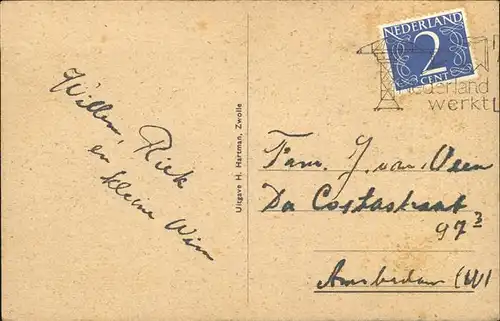 Willem,
Riek
en kleine Wim
Uitgave H. Hartman, Zwolle
NEDERLAND
2
CENT
Nederland
werkt!
Fam. J. van Veen
Da Costastraat
97 3
Amsterdam (W)